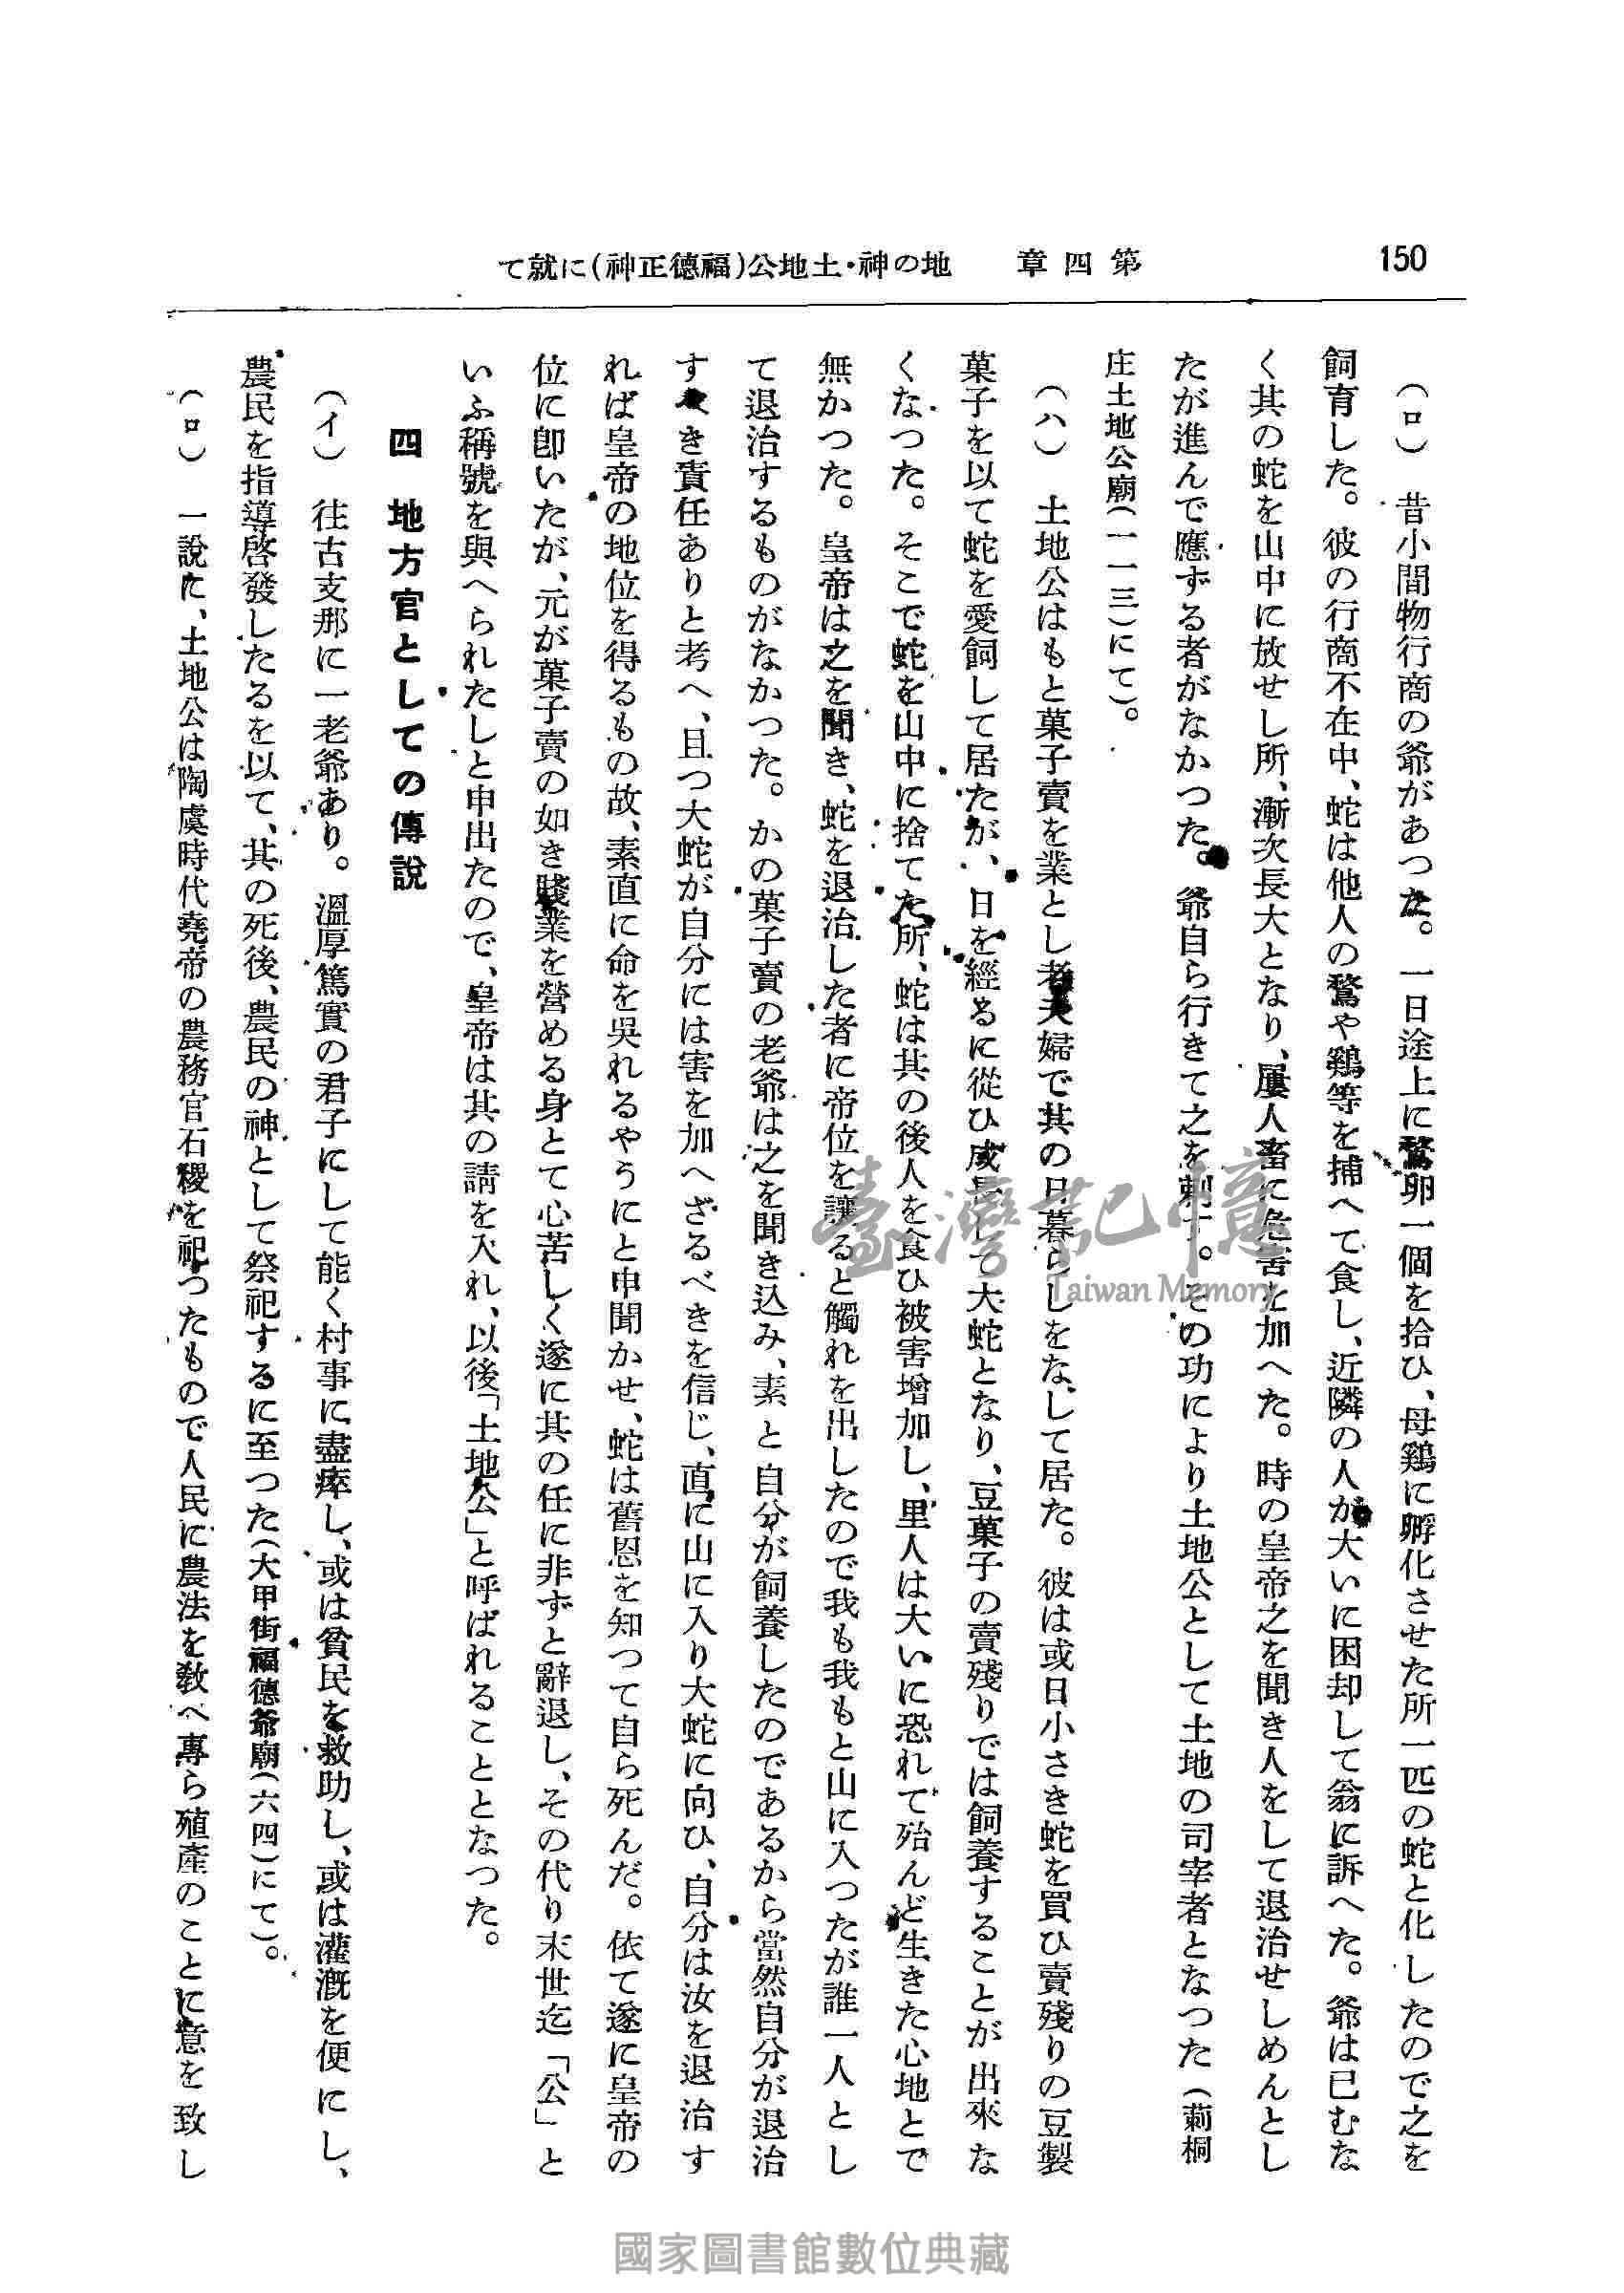 150
第四章　地の神・土地公(福德正神)に就て
（ロ）　昔小間物行商の爺があつた。一日途上に鵞卵一個を拾ひ、母鷄に孵化させた所一匹の蛇と化したので之を
飼育した。彼の行商不在中、蛇は他人の鵞や鷄等を捕へて食し、近隣の人が大いに困却して翁に訴へた。爺は已むな
く其の蛇を山中に放せし所、漸次長大となり、屢人畜に危害を加へた。時の皇帝之を聞き人をして退治せしめんとし
たが進んで應ずる者がなかつた。爺自ら行きて之を刺す。その功により土地公として土地の司宰者となつた（莿桐
庄土地公廟（一一三）にて）。
（ハ）　土地公はもと菓子賣を業とし老夫婦で其の日暮らしをなして居た。彼は或日小さき蛇を買ひ賣殘りの豆製
菓子を以て蛇を愛飼して居たが、日を經るに從ひ成長して大蛇となり、豆菓子の賣殘りでは飼養することが出來な
くなつた。そこで蛇を山中に捨てた所、蛇は其の後人を食ひ被害增加し、里人は大いに恐れて殆んど生きた心地とて
無かつた。皇帝は之を聞き、蛇を退治した者に帝位を讓ると觸れを出したので我も我もと山に入つたが誰一人とし
て退治するものがなかつた。かの菓子賣の老爺は之を聞き込み、素と自分が飼養したのであるから當然自分が退治
すべき責任ありと考へ、且つ大蛇が自分には害を加へざるべきを信じ、直に山に入り大蛇に向ひ、自分は汝を退治す
れば皇帝の地位を得るもの故、素直に命を吳れるやうにと申聞かせ、蛇は舊恩を知つて自ら死んだ。依て遂に皇帝の
位に卽いたが、元が菓子賣の如き賤業を營める身とて心苦しく遂に其の任に非ずと辭退し、その代り末世迄「公」と
いふ稱號を與へられたしと申出たので、皇帝は其の請を入れ、以後「土地公」と呼ばれることとなつた。
四　地方官としての傳說
（イ）　往古支那に一老爺あり。溫厚篤實の君子にして能く村事に盡瘁し、或は貧民を救助し、或は灌漑を便にし、
農民を指導啓發したるを以て、其の死後、農民の神として祭祀するに至つた（大甲街福德爺廟（六四）にて）。
（ロ）　一說た、土地公は陶虞時代堯帝の農務官石稷を祀つたもので人民に農法を敎へ專ら殖產のことに意を致し
臺灣記憶
Taiwan Memory
國家圖書館數位典藏